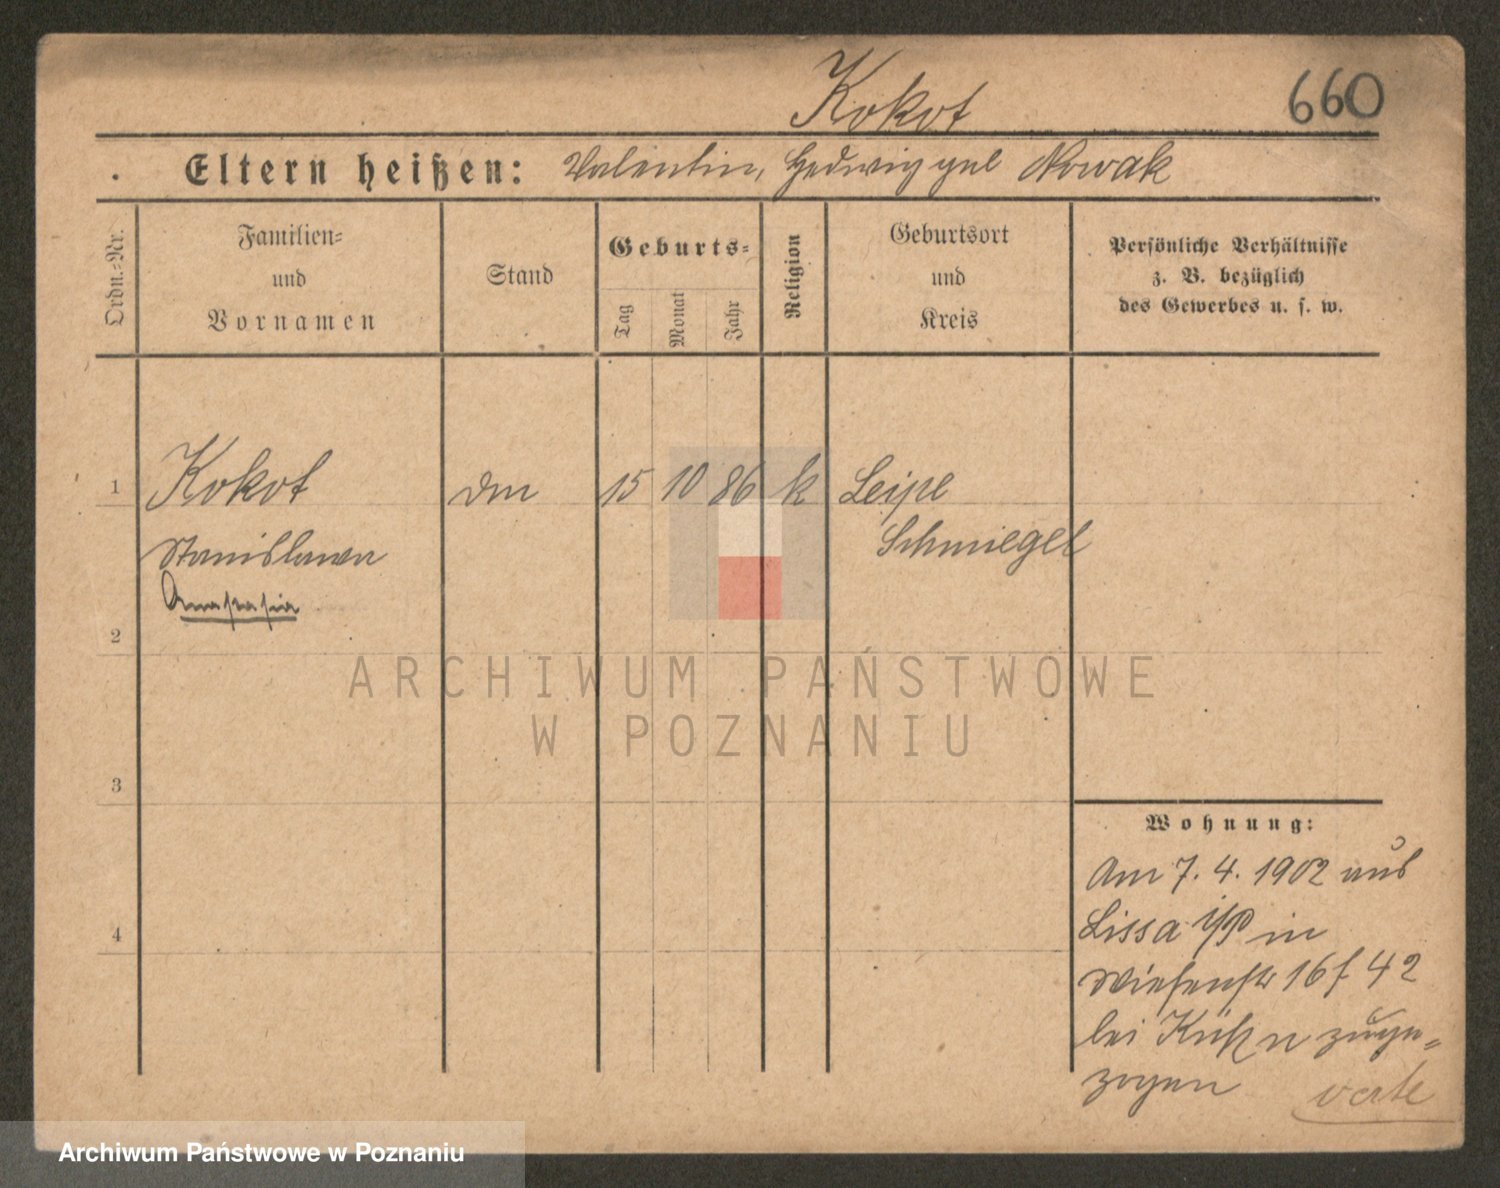 Kokot
660
Eltern heißen: Valentin, Hedwig geb Nowak
Ordn.-Nr.
Familien-
und
Vornamen
Stand
Geburts-
Tag
Monat
Jahr
Religion
Geburtsort
und
Kreis
Persönliche Verhältnisse
z. B. bezüglich
des Gewerbes u. s. w.
1 Kokot 15 10 86 k Leipe
Stanislawa Schmiegel
Anastasia
2
3
4
Wohnung:
Am 7. 4. 1902 aus
Lissa i/P in
Wiesenstr 16 f 42
bei zuge-
zogen verte
ARCHIWUM PAŃSTWOWE
W POZNANIU
Archiwum Państwowe w Poznaniu